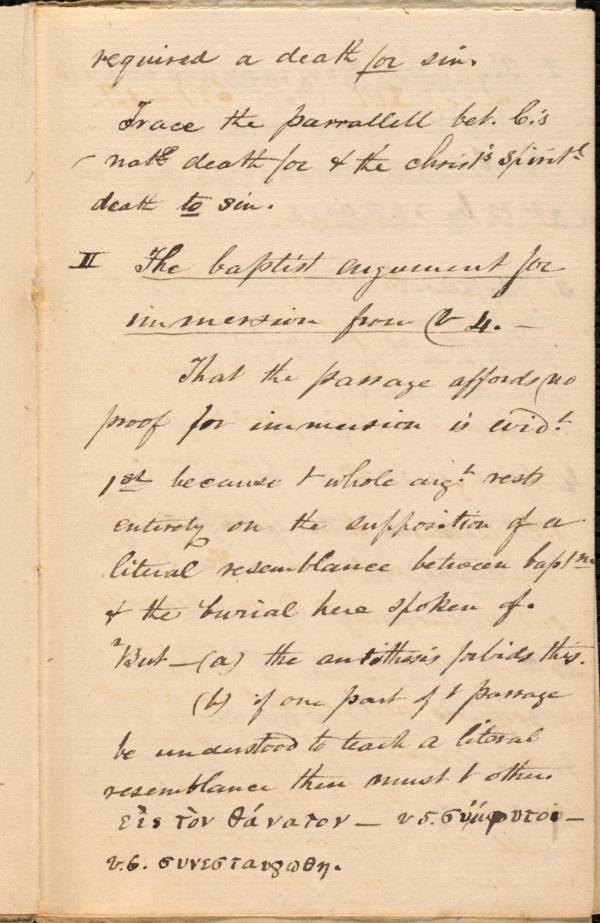 required a death for sin.
Trace the parrallell bet. C.'s
natl death for & the christ's spiritl
death to sin.
II The baptist argument for
immersion from (v 4. —
That the passage affords (no
proof for immersion is evidt.
1st because t whole argt. rests
entirely on the supposition of a
literal resemblance between baptsm
& the burial here spoken of.
But — (a) the antithesis forbids this.
(b) if one part of t passage
be understood to teach a literal
resemblance then must t other
εἰς τὸν θάνατον — v 5. σύμφυτοι —
v. 6. συνεσταυρωθη.